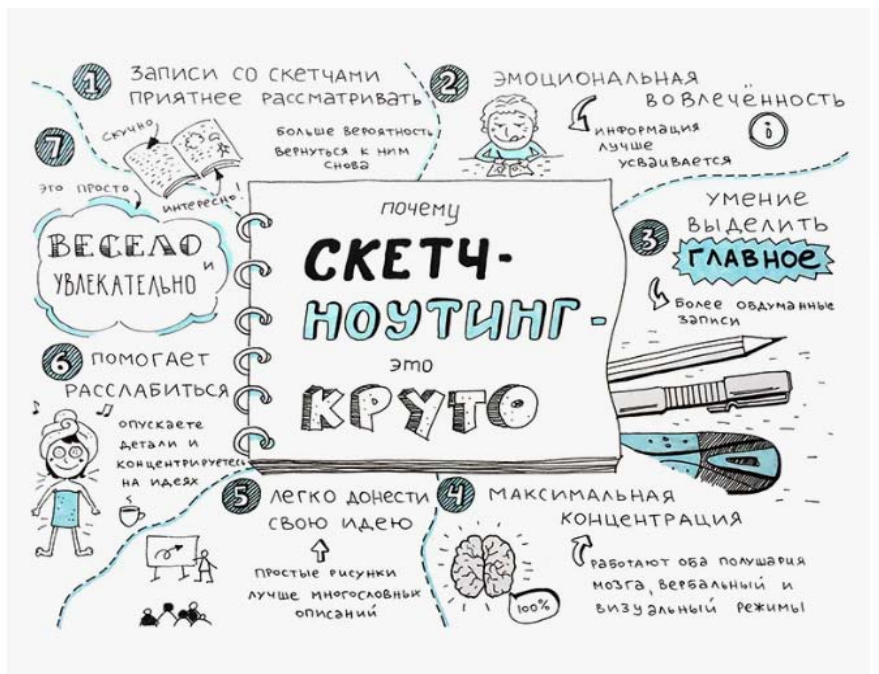 почему
СКЕТЧ-
НОУТИНГ-
это
КРУТО
1 ЗАПИСИ СО СКЕТЧАМИ
ПРИЯТНЕЕ РАССМАТРИВАТЬ
БОЛЬШЕ ВЕРОЯТНОСТЬ
ВЕРНУТЬСЯ К НИМ
СНОВА
СКУЧНО
ИНТЕРЕСНО!
2 ЭМОЦИОНАЛЬНАЯ
ВОВЛЕЧЁННОСТЬ
ИНФОРМАЦИЯ
ЛУЧШЕ
УСВАИВАЕТСЯ
i
3 УМЕНИЕ
ВЫДЕЛИТЬ
ГЛАВНОЕ
БОЛЕЕ ОБДУМАННЫЕ
ЗАПИСИ
4 МАКСИМАЛЬНАЯ
КОНЦЕНТРАЦИЯ
РАБОТАЮТ ОБА ПОЛУШАРИЯ
МОЗГА, ВЕРБАЛЬНЫЙ И
ВИЗУАЛЬНЫЙ РЕЖИМЫ
100%
5 ЛЕГКО ДОНЕСТИ
СВОЮ ИДЕЮ
ПРОСТЫЕ РИСУНКИ
ЛУЧШЕ МНОГОСЛОВНЫХ
ОПИСАНИЙ
6 ПОМОГАЕТ
РАССЛАБИТЬСЯ
ОПУСКАЕТЕ
ДЕТАЛИ И
КОНЦЕНТРИРУЕТЕСЬ
НА ИДЕЯХ
7
ЭТО ПРОСТО
ВЕСЕЛО
И
УВЛЕКАТЕЛЬНО